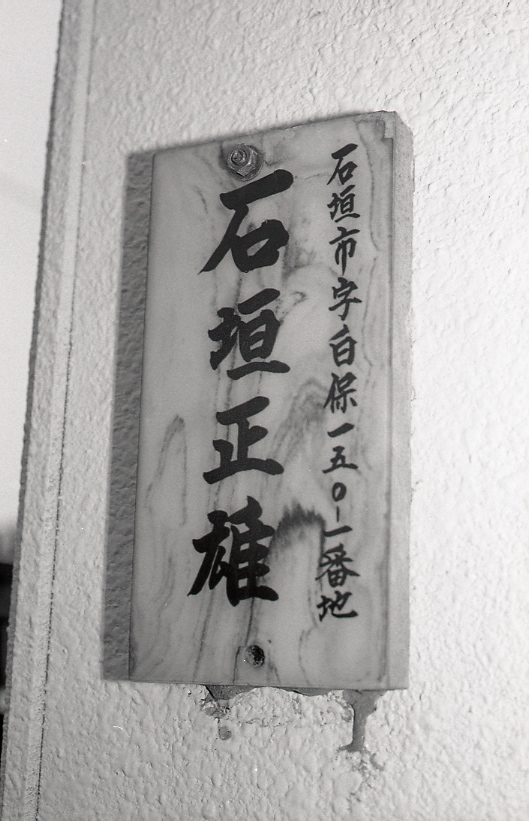 石垣市字白保一五〇-一番地
石垣正雄